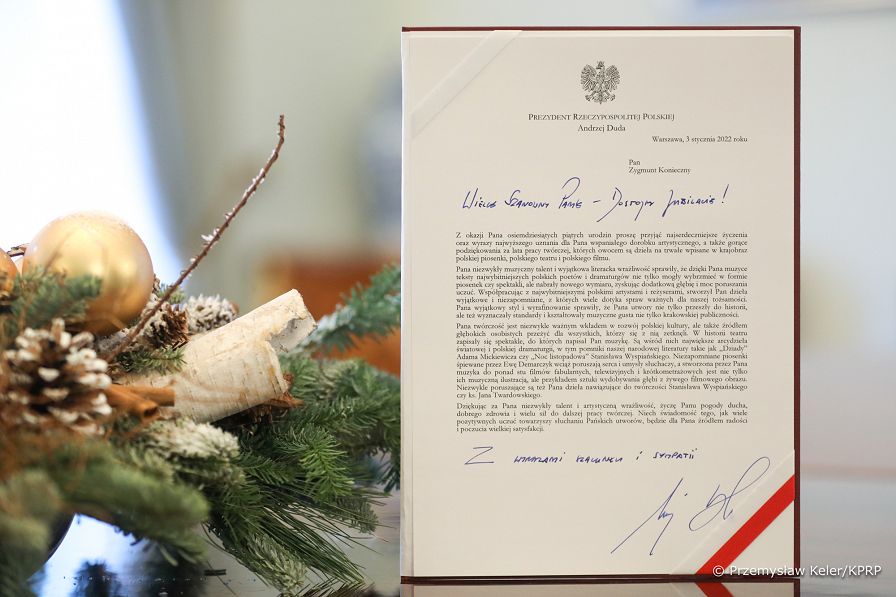 PREZYDENT RZECZYPOSPOLITEJ POLSKIEJ
Andrzej Duda
Warszawa, 3 stycznia 2022 roku
Pan
Zygmunt Konieczny
WIELCE SZANOWNY PANIE – DOSTOJNY JUBILACIE!
Z okazji Pana osiemdziesiątych piątych urodzin proszę przyjąć najserdeczniejsze życzenia
oraz wyrazy najwyższego uznania dla Pana wspaniałego dorobku artystycznego, a także gorące
podziękowania za lata pracy twórczej, których owocem są dzieła na trwałe wpisane w krajobraz
polskiej piosenki, polskiego teatru i polskiego filmu.
Pana niezwykły muzyczny talent i wyjątkowa literacka wrażliwość sprawiły, że dzięki Pana muzyce
teksty najwybitniejszych polskich poetów i dramaturgów nie tylko mogły wybrzmieć w formie
piosenek czy spektakli, ale nabrały nowego wymiaru, zyskując dodatkową głębię i moc poruszania
uczuć. Współpracując z najwybitniejszymi polskimi artystami i reżyserami, stworzył Pan dzieła
wyjątkowe i niezapomniane, z których wiele dotyka spraw ważnych dla naszej tożsamości.
Pana wyjątkowy styl i wyrafinowanie sprawiły, że Pana utwory nie tylko przeszły do historii,
ale też wyznaczały standardy i kształtowały muzyczne gusta nie tylko krakowskiej publiczności.
Pana twórczość jest niezwykle ważnym wkładem w rozwój polskiej kultury, ale także źródłem
głębokich osobistych przeżyć dla wszystkich, którzy się z nią zetknęli. W historii teatru
zapisały się spektakle, do których napisał Pan muzykę. Są wśród nich największe arcydzieła
światowej i polskiej dramaturgii, w tym pomniki naszej narodowej literatury takie jak „Dziady”
Adama Mickiewicza czy „Noc listopadowa” Stanisława Wyspiańskiego. Niezapomniane piosenki
śpiewane przez Ewę Demarczyk wciąż poruszają serca i umysły słuchaczy, a stworzona przez Pana
muzyka do ponad stu filmów fabularnych, telewizyjnych i krótkometrażowych jest nie tylko
ich muzyczną ilustracją, ale przykładem sztuki wydobywania głębi z żywego filmowego obrazu.
Niezwykle poruszające są też Pana dzieła nawiązujące do twórczości Stanisława Wyspiańskiego
czy ks. Jana Twardowskiego.
Dziękując za Pana niezwykły talent i artystyczną wrażliwość, życzę Panu pogody ducha,
dobrego zdrowia i wielu sił do dalszej pracy twórczej. Niech świadomość tego, jak wiele
pozytywnych uczuć towarzyszy słuchaniu Pańskich utworów, będzie dla Pana źródłem radości
i poczucia wielkiej satysfakcji.
Z WYRAZAMI SZACUNKU I SYMPATII
© Przemysław Keler/KPRP